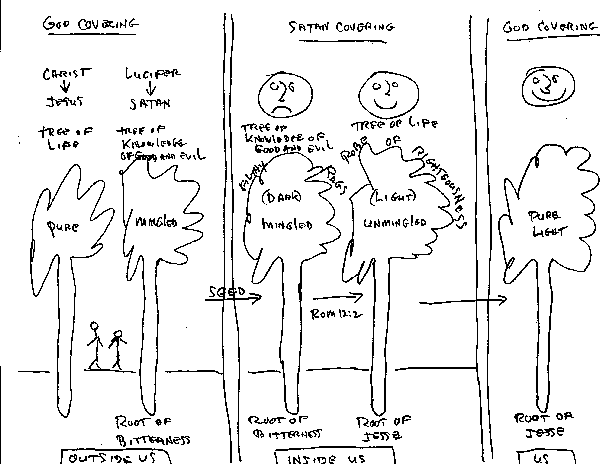 GOD COVERING
SATAN COVERING
GOD COVERING
CHRIST
JESUS
TREE OF
LIFE
PURE
LUCIFER
SATAN
TREE OF
KNOWLEDGE
OF GOOD AND EVIL
MINGLED
ROOT OF
BITTERNESS
OUTSIDE US
SEED
TREE OF
KNOWLEDGE OF
GOOD AND EVIL
FILTHY RAGS
(DARK)
MINGLED
ROOT OF
BITTERNESS
ROM 12:2
TREE OF LIFE
ROBE OF RIGHTEOUSNESS
(LIGHT)
UNMINGLED
ROOT OF
JESSE
INSIDE US
PURE
LIGHT
ROOT OF
JESSE
US